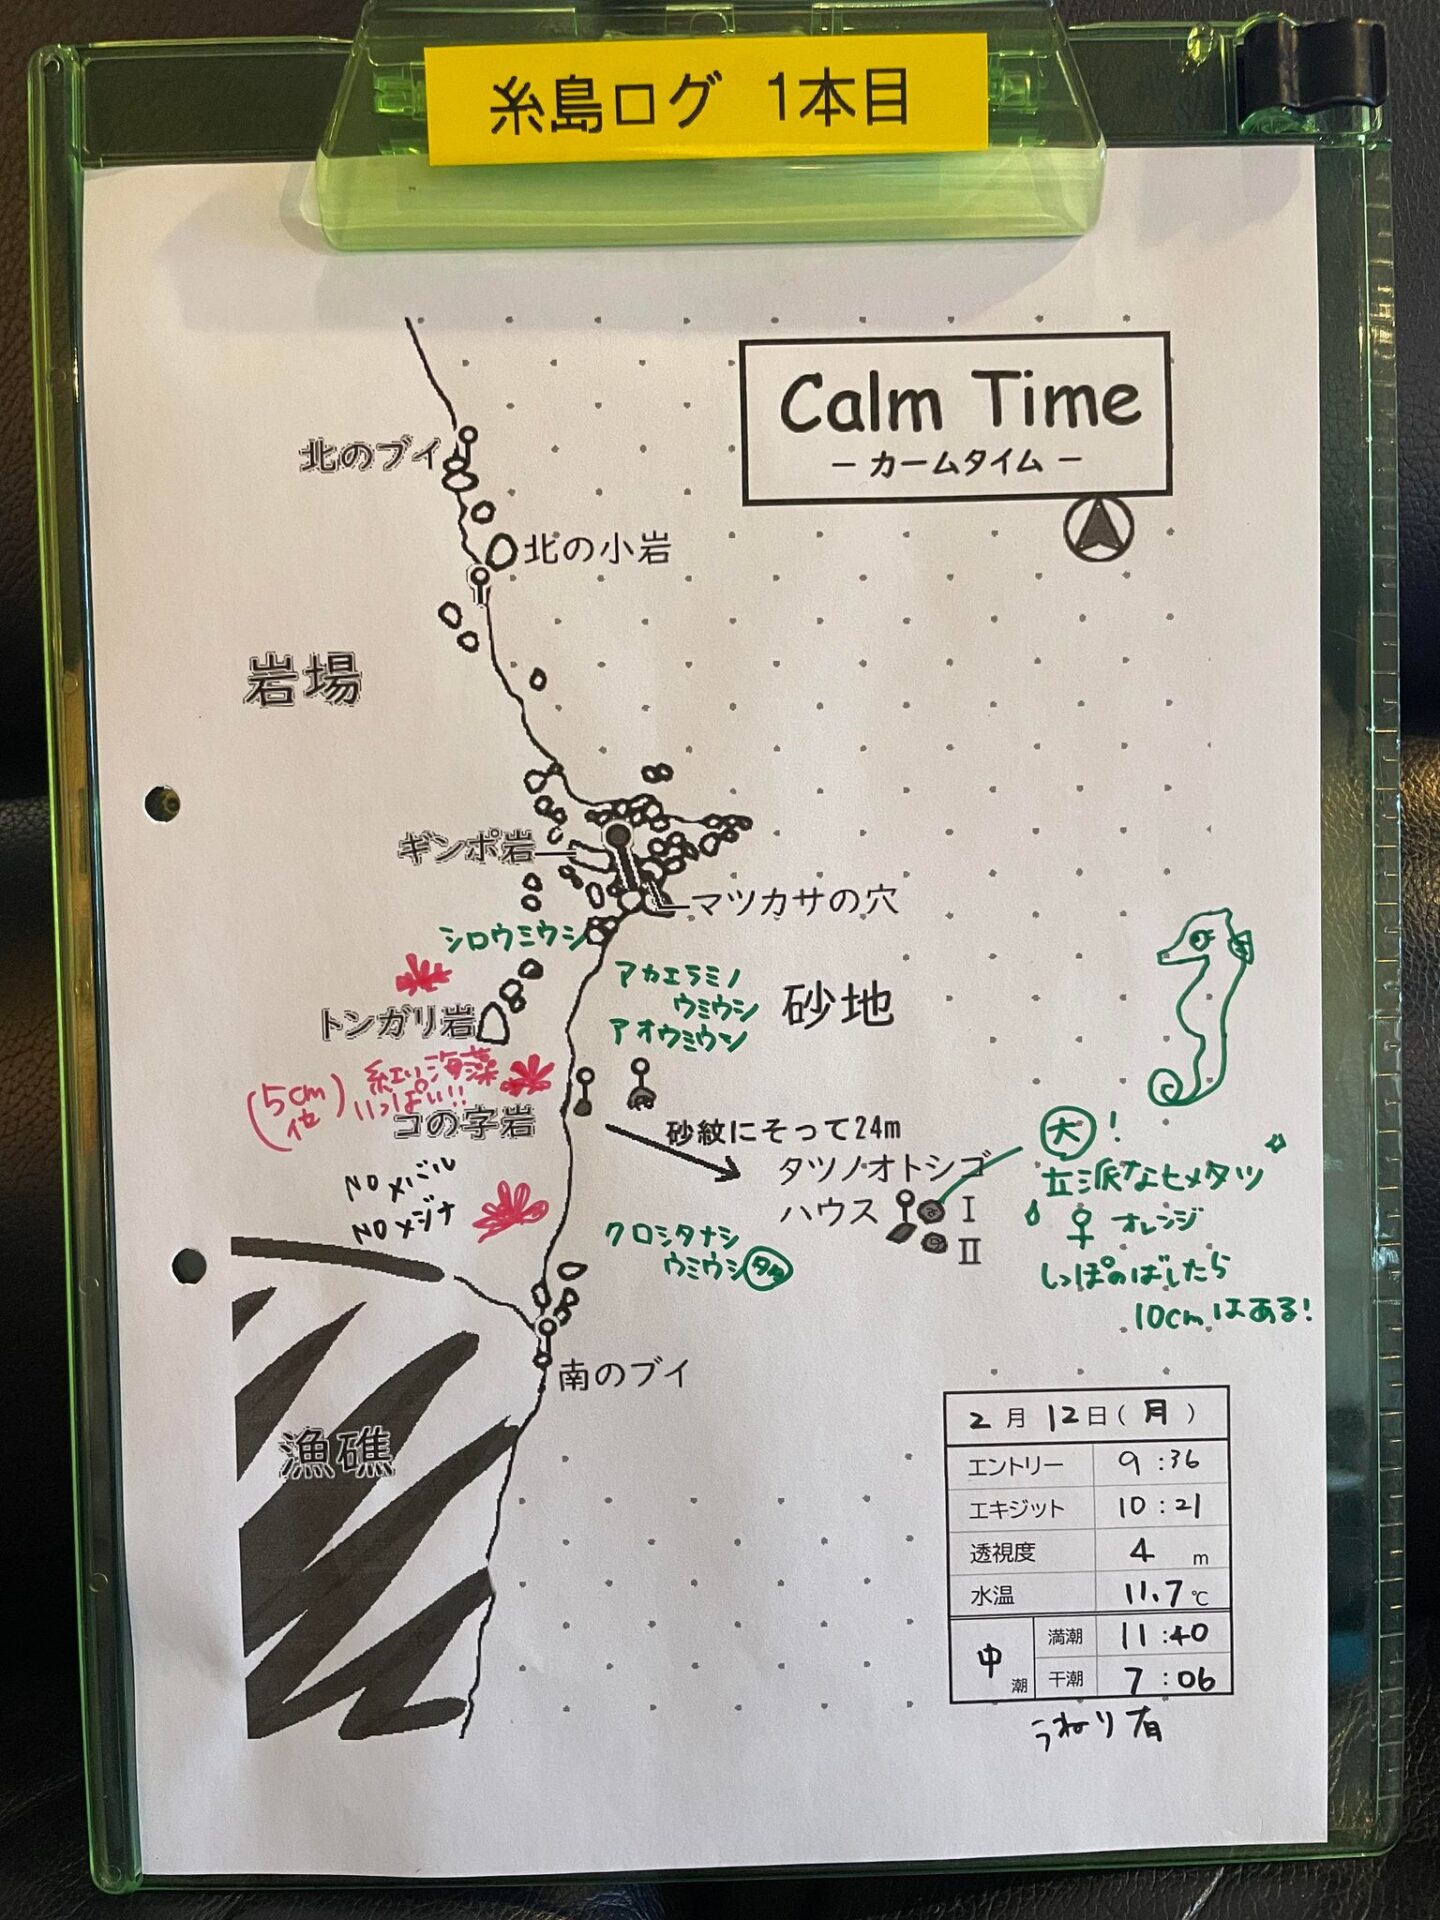 糸島ログ 1本目
Calm Time
− カームタイム −
北のブイ
北の小岩
岩場
ギンポ岩
マツカサの穴
シロウミウシ
アカエラミノ
ウミウシ
アオウミウシ
砂地
トンガリ岩
紅い海藻
いっぱい!!
(5cm位)
コの字岩
砂紋にそって24m
タツノオトシゴ
ハウス
I
II
大!
立派なヒメタツ
♀ オレンジ
しっぽのばしたら
10cmはある!
NO メバル
NO メジナ
クロシタナシ
ウミウシ
南のブイ
漁礁
2月12日(月)
エントリー 9:36
エキジット 10:21
透視度 4 m
水温 11.7℃
中潮
満潮 11:40
干潮 7:06
うねり有